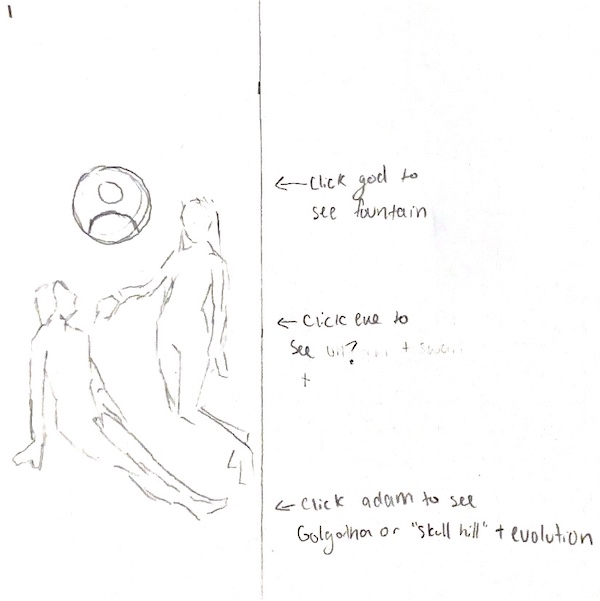 1
← Click god to
see fountain
← Click eve to
see ?
+
← Click adam to see
Golgotha or "skull hill" + evolution